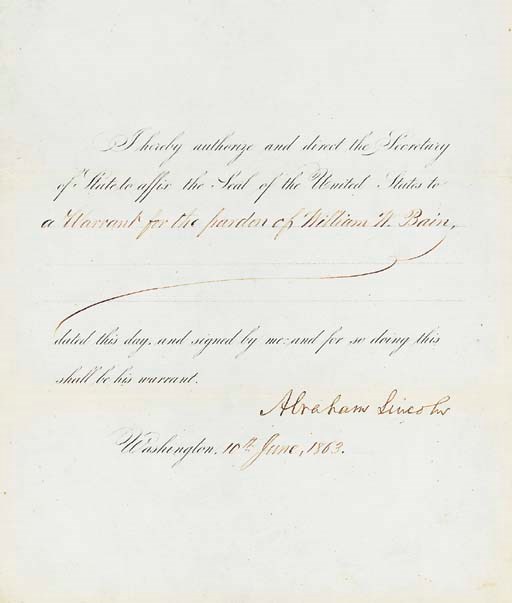 I hereby authorize and direct the Secretary
of State to affix the Seal of the United States to
a Warrant for the pardon of William W. Bain,
dated this day, and signed by me: and for so doing this
shall be his warrant.
Abraham Lincoln
Washington, 10th June, 1863.